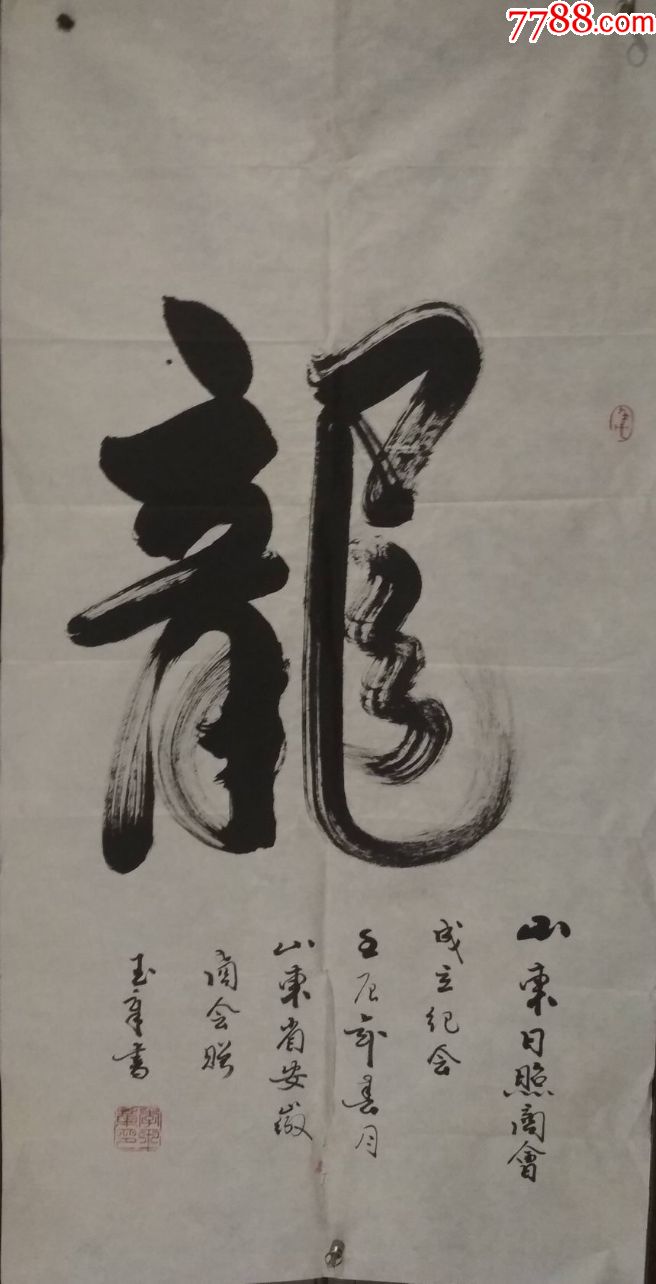 7788.com
龍
山東日照商會
成立纪念
壬辰年春月
山東省安徽
商会贈
玉章書